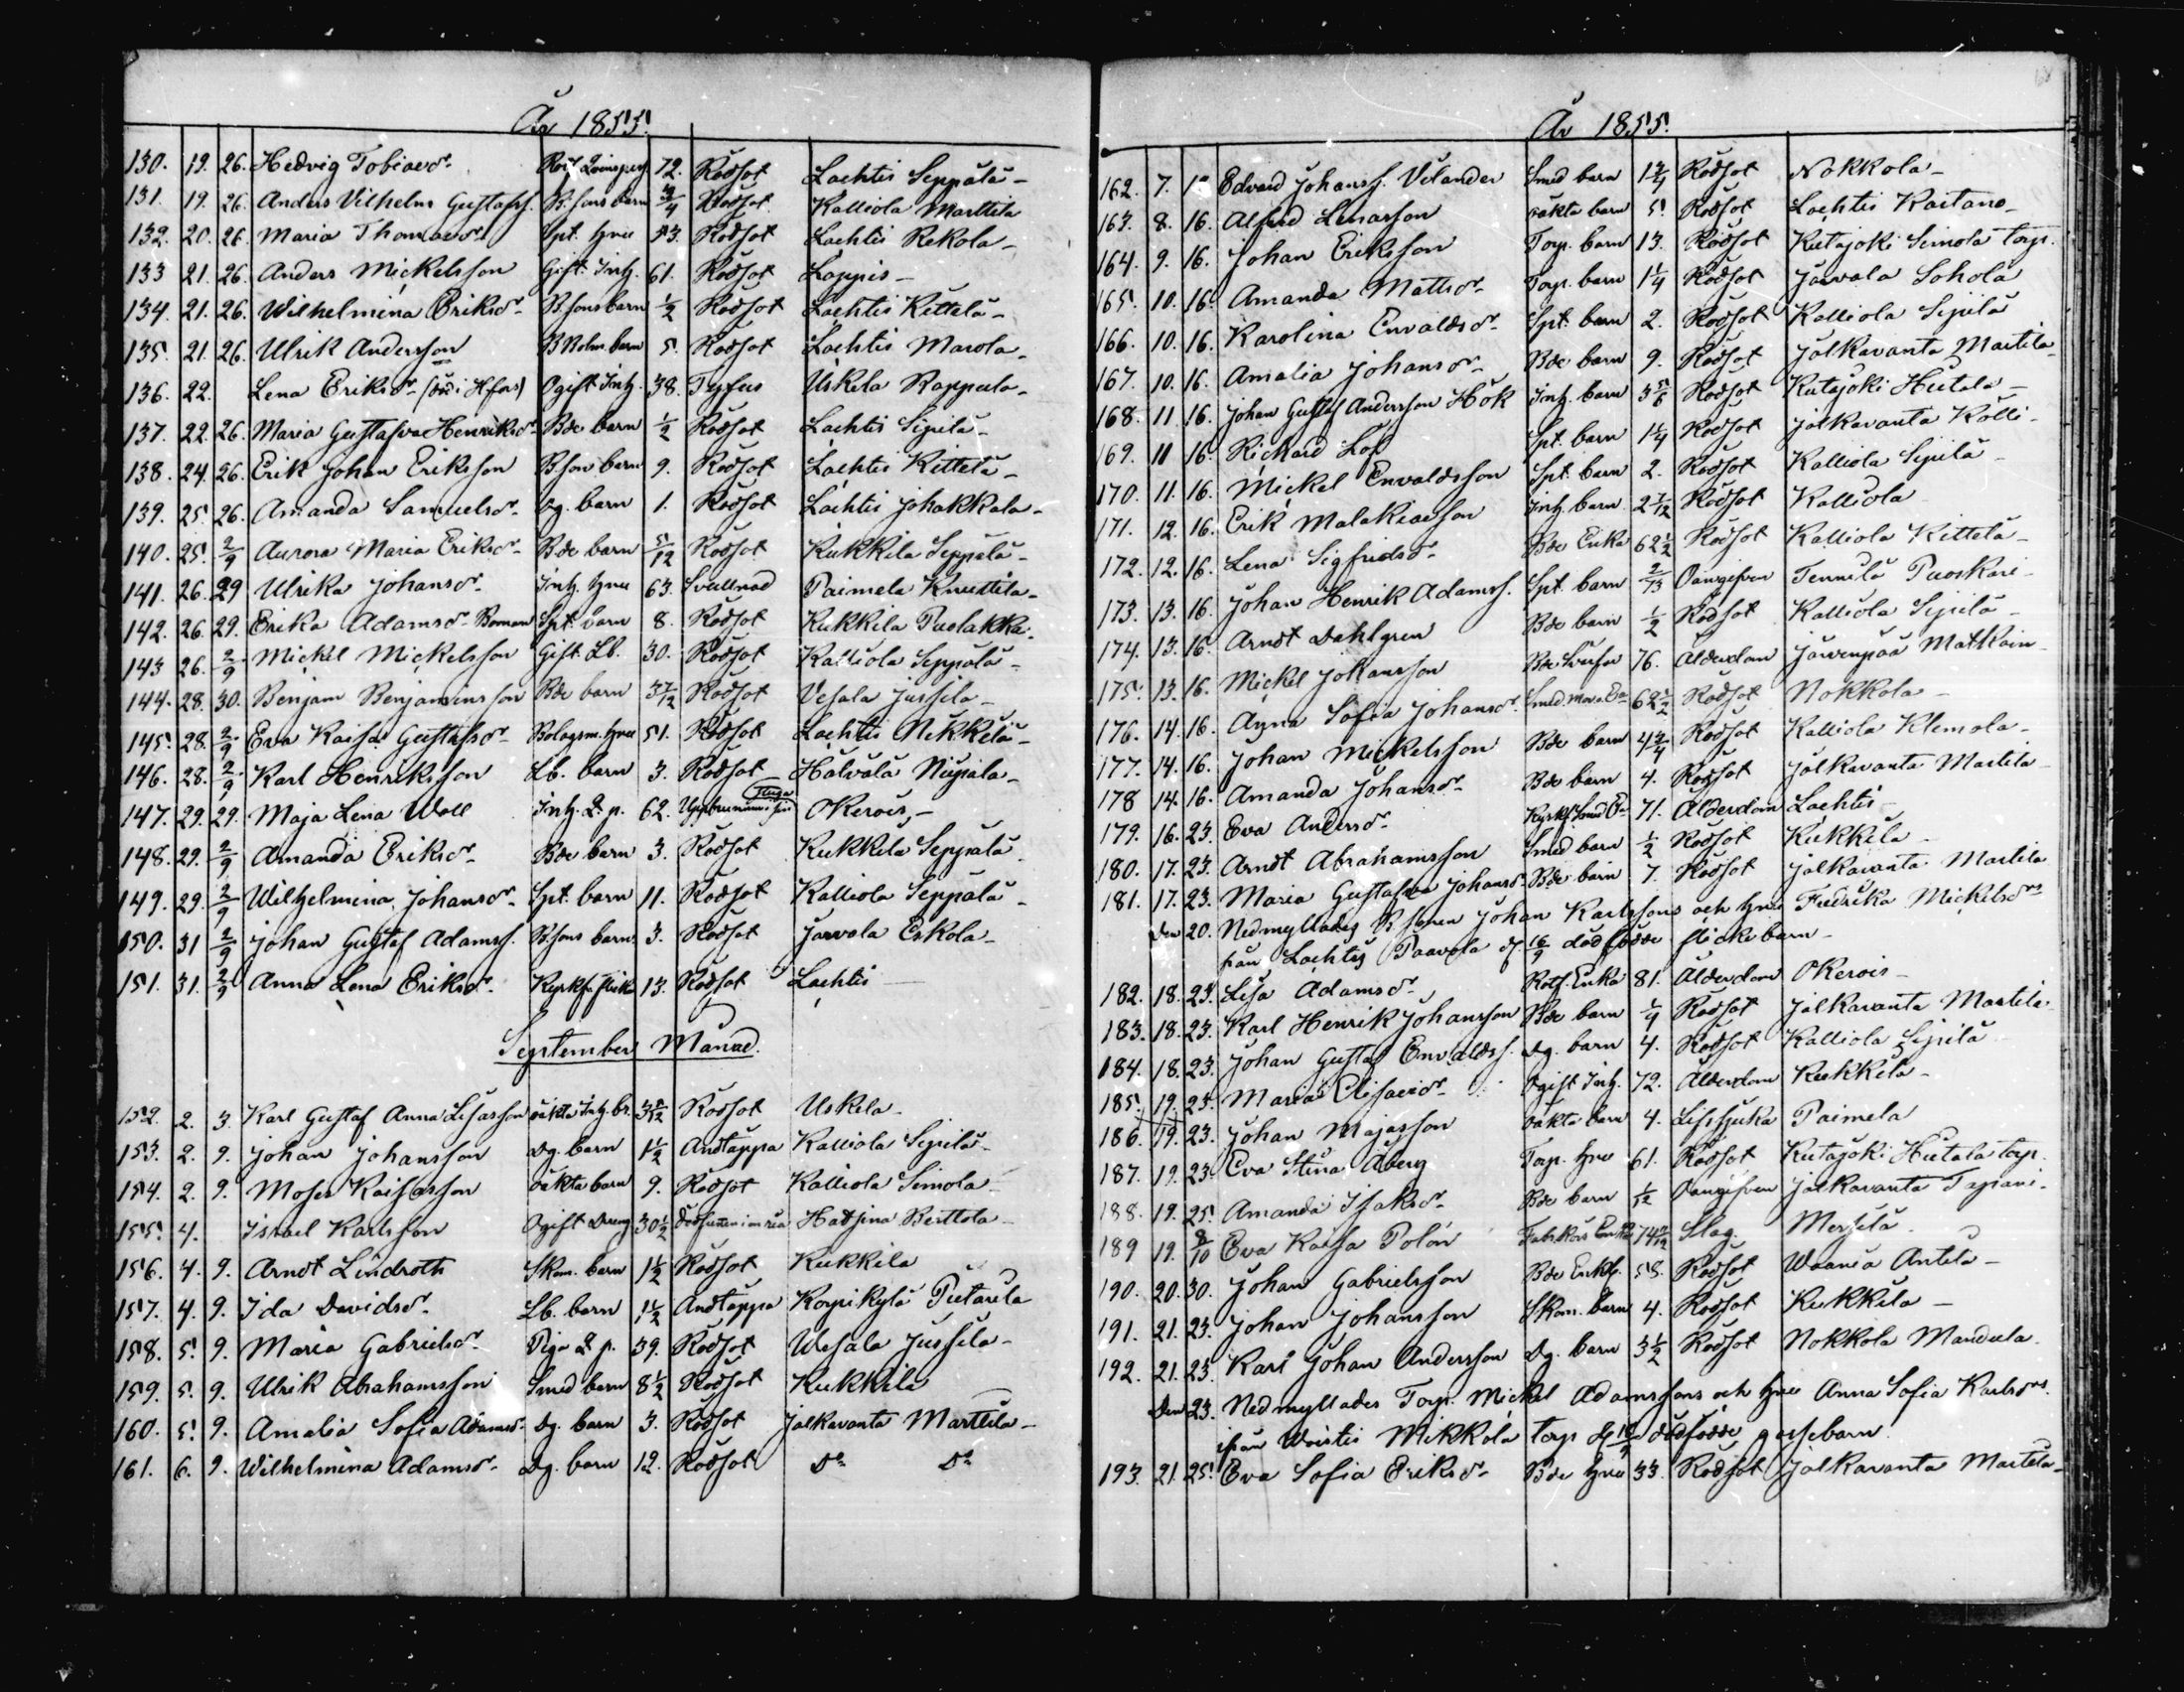 År 1855.
130. 19. 26. Hedvig Tobiaed:r Rotf. Qvinsper 72. Rödsot Lachtis Seppälä -
131. 19. 26. Anders Vilhelm Gustafss. B. sons barn 3/4 Rödsot Kalliola Marttila
132. 20. 26. Maria Thomasd:r Spt. hru 53. Rödsot Lachtis Rekola -
133 21. 26. Anders Mickelsson Gift. Inh. 61. Rödsot Loppis -
134. 21. 26. Wilhelmina Eriksd:r B. sons barn 1/2 Rödsot Lachtis Kittelä -
135. 21. 26. Ulrik Andersson B Mshm. barn 5. Rödsot Lachtis Marola -
136. 22. Lena Eriksd:r (död i Hfors) Ogift Inh. 38. Tyfus Uskila Rappula -
137. 22. 26. Maria Gustafva Henriksd:r Bde barn 1/2 Rödsot Lachtis Sipilä -
138. 24. 26. Erik Johan Eriksson B. son barn 9. Rödsot Lachtis Kittelä -
139. 25. 26. Amanda Samuelsd:r Dg. barn 1. Rödsot Lachtis Johakkala -
140. 25. 2/9 Aurora Maria Eriksd:r Bde barn 5/12 Rödsot Kukkila Seppälä -
141. 26. 29 Ulrika Johansd:r Inh. hru 63. Svullnad Paimela Knuttila -
142. 26. 29. Erika Adamsd:r Boman Spt. barn 8. Rödsot Kukkila Puolakka.
143 26. 2/9 Mickel Mickelsson Gift. Lb. 30. Rödsot Kalliola Seppälä -
144. 28. 30. Benjam Benjaminsson Bde barn 3 7/12 Rödsot Vesala Jussila -
145. 28. 2/9 Eva Kaisa Gustafsd:r Bolagsm. hru 51. Rödsot Lachtis Nikkilä -
146. 28. 2/9 Karl Henriksson Lb. barn 3. Rödsot Hälvälä Nuijala -
147. 29. 29. Maja Lena Woll Inh. Q. p. 62. Okerois, -
148. 29. 2/9 Amanda Eriksd:r Bde barn 3. Rödsot Kukkila Seppälä
149. 29. 2/9 Wilhelmina Johansd:r Spt. barn 11. Rödsot Kalliola Seppälä -
150. 31 2/9 Johan Gustaf Adamss. B. sons barn 3. Rödsot Jarvala Eskola -
151. 31. 2/9 Anna Lena Eriksd:r Kyrkf. flicka 13. Rödsot Lachtis
September Månad.
152. 2. 3. Karl Gustaf Anna Lisasson oäkta Inh. br. 3 5/12 Rödsot Uskila -
153. 2. 9. Johan Johansson Dg. barn 1 1/2 Andtäppa Kalliola Sipilä -
154. 2. 9. Moses Kaisasson oäkta barn 9. Rödsot Kalliola Simola -
155. 4. Israel Karlsson Ogift Dreng 30 1/2 Dödfunnen i en ria Hatsina Berttola -
156. 4. 9. Arndt Lindroth Skom. barn 1 1/2 Rödsot Kukkila
157. 4. 9. Ida Davidsd:r Lb. barn 1 1/2 Andtäppa Korpikylä Pietarila
158. 5. 9. Maria Gabrielsd:r Piga Q. p. 39. Rödsot Wesala Jussila -
159. 5. 9. Ulrik Abrahamsson Smed barn 8 1/2 Rödsot Kukkila
160. 5. 9. Amalia Sofia Adamsd:r Dg. barn 3. Rödsot Jalkaranta Marttila -
161. 6. 9. Wilhelmina Adamsd:r Dg. barn 12. Rödsot D:o D:o
År 1855.
162. 7. Edvard Johanss. Vilander Smed barn 1 3/4 Rödsot Nokkola -
163. 8. 16. Alfred Lenasson oäkta barn 5. Rödsot Lachtis Kaitano -
164. 9. 16. Johan Eriksson Torp. barn 13. Rödsot Kutajoki Simola torp.
165. 10. 16. Amanda Mattsd:r Torp. barn 1 1/4 Rödsot Järvala Sohola
166. 10. 16. Karolina Envaldsd:r Spt. barn 2. Rödsot Kalliola Sipilä
167. 10. 16. Amalia Johansd:r Bde barn 9. Rödsot Jalkaranta Martila -
168. 11 16. Johan Gustaf Andersson Hök Inh. barn 3 5/6 Rödsot Kutajoki Hutala -
169. 11 16. Rickard Löf Spt. barn 1 1/4 Rödsot Jalkaranta Kolli -
170. 11. 16. Mickel Envaldsson Spt. barn 2. Rödsot Kalliola Sipilä -
171. 12. 16. Erik Malakiasson Inh. barn 2 1/12 Rödsot Kalliola
172. 12. 16. Lena Sigfridsd:r Bde Enka 62 1/2 Rödsot Kalliola Kittelä -
173. 13. 16. Johan Henrik Adamss. Spt. barn 2/13 Oangifven Tennilä Puoskari -
174. 13. 16. Arndt Dahlgren Bde barn 1/2 Rödsot Kalliola Sipilä -
175. 13. 16. Mickel Johansson Bde Svärfar 76. Ålderdom Järvenpää Matkain -
176. 14. 16. Anna Sofia Johansd:r 62 1/2 Rödsot Nokkola -
177. 14. 16. Johan Mickelsson Bde barn 4 3/4 Rödsot Kalliola Klemola -
178 14. 16. Amanda Johansd:r Bde barn 4. Rödsot Jalkaranta Martila -
179. 16. 23. Eva Andersd:r 71. Ålderdom Lachtis -
180. 17. 23. Arndt Abrahamsson Smed barn 1/2 Rödsot Kukkila -
181. 17. 23. Maria Gustafva Johansd:r Bde barn 7. Rödsot Jalkaranta Martila
Den 20. Nedmyllades B. sonen Johan Karlssons och hrus Fredrika Mickelsd:rs
från Lachtis Paavola d. 16/9 dödfödde flickebarn -
182. 18. 23. Lisa Adamsd:r Rotf. Enka 81. Ålderdom Okerois -
183. 18. 23. Karl Henrik Johansson Bde barn 1/4 Rödsot Jalkaranta Martila
184. 18. 23. Johan Gustaf Envaldss. Dg. barn 4. Rödsot Kalliola Sipilä -
185. 19. 23. Maria Elisaeid:r Ogift Inh. 72. Ålderdom Kukkila -
186. 19. 23. Johan Majasson oäkta barn 4. Lifsjuka Paimela
187. 19. 23. Eva Stina Åberg Torp. hru 61. Rödsot Kutajoki Hutala torp.
188. 19. 25. Amanda Isaksd:r Bde barn 1/12 Oangifven Jalkaranta Tapiani -
189 19. 8/10 Eva Kaisa Polón Slag. Mersilä
190. 20. 30. Johan Gabrielsson Bde Enkl. 58. Rödsot Waania Antila -
191. 21. 23. Johan Johansson Skom. barn 4. Rödsot Kukkila -
192. 21. 23. Karl Johan Andersson Dg. barn 3 1/2 Rödsot Nokkola Mandula
Den 23. Nedmyllades Torp. Mickel Adamssons och hrus Anna Sofia Karlsd:rs
ifrån Woistis Mikkola torp dödfödde gossebarn
193. 21. 25. Eva Sofia Eriksd:r Bde hru 33. Rödsot Jalkaranta Martila -